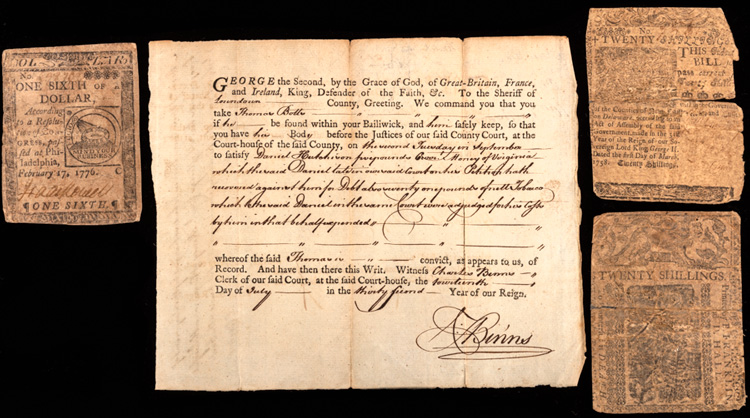 DOLLARS
No.
ONE SIXTH of
a DOLLAR,
According
to a Resolu-
GRESS, pas-
sed at Phi-
ladelphia,
February 17, 1776.
MIND YOUR
BUSINESS
ONE SIXTH.
GEORGE the Second, by the Grace of God, of Great-Britain, France,
and Ireland, King, Defender of the Faith, &c. To the Sheriff of
Loundoun County, Greeting. We command you that you
take Thomas Botts
if he be found within your Bailiwick, and him safely keep, so that
you have his Body before the Justices of our said County Court, at the
Court-house of the said County, on the second Tuesday in September
to satisfy Daniel Hutchison five pounds Curr.t Money of Virginia
which the said Daniel late in our said Court on his Petition hath
recovered against him for Debt also ninety one pounds of nett Tobaco
which to the said Daniel in the same Court were adjudged for his Costs
by him in that behalf expended
whereof the said Thomas is convict, as appears to us, of
Record. And have then there this Writ. Witness Charles Binns
Clerk of our said Court, at the said Court-house, the fourteenth
Day of July in the thirty second Year of our Reign.
Binns
No.
TWENTY SHILLINGS
THIS
BILL
pass current
Delaware,
Act of Assembly of the said
Government, made in the
Year of the Reign of our So-
vereign Lord King George II.
Dated the first Day of March,
1758. Twenty Shillings.
TWENTY SHILLINGS.